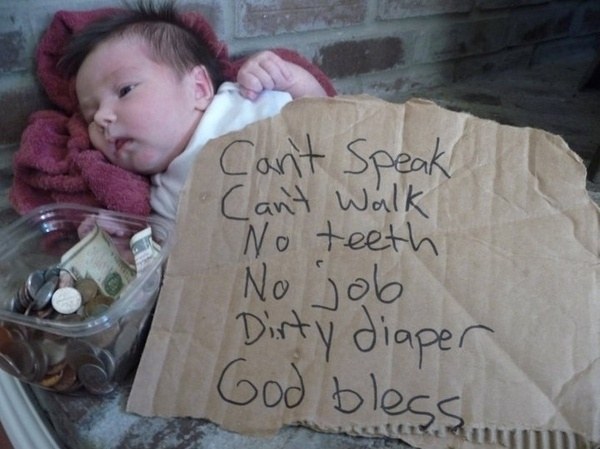 Can't Speak
Can't Walk
No teeth
No job
Dirty diaper
God bless